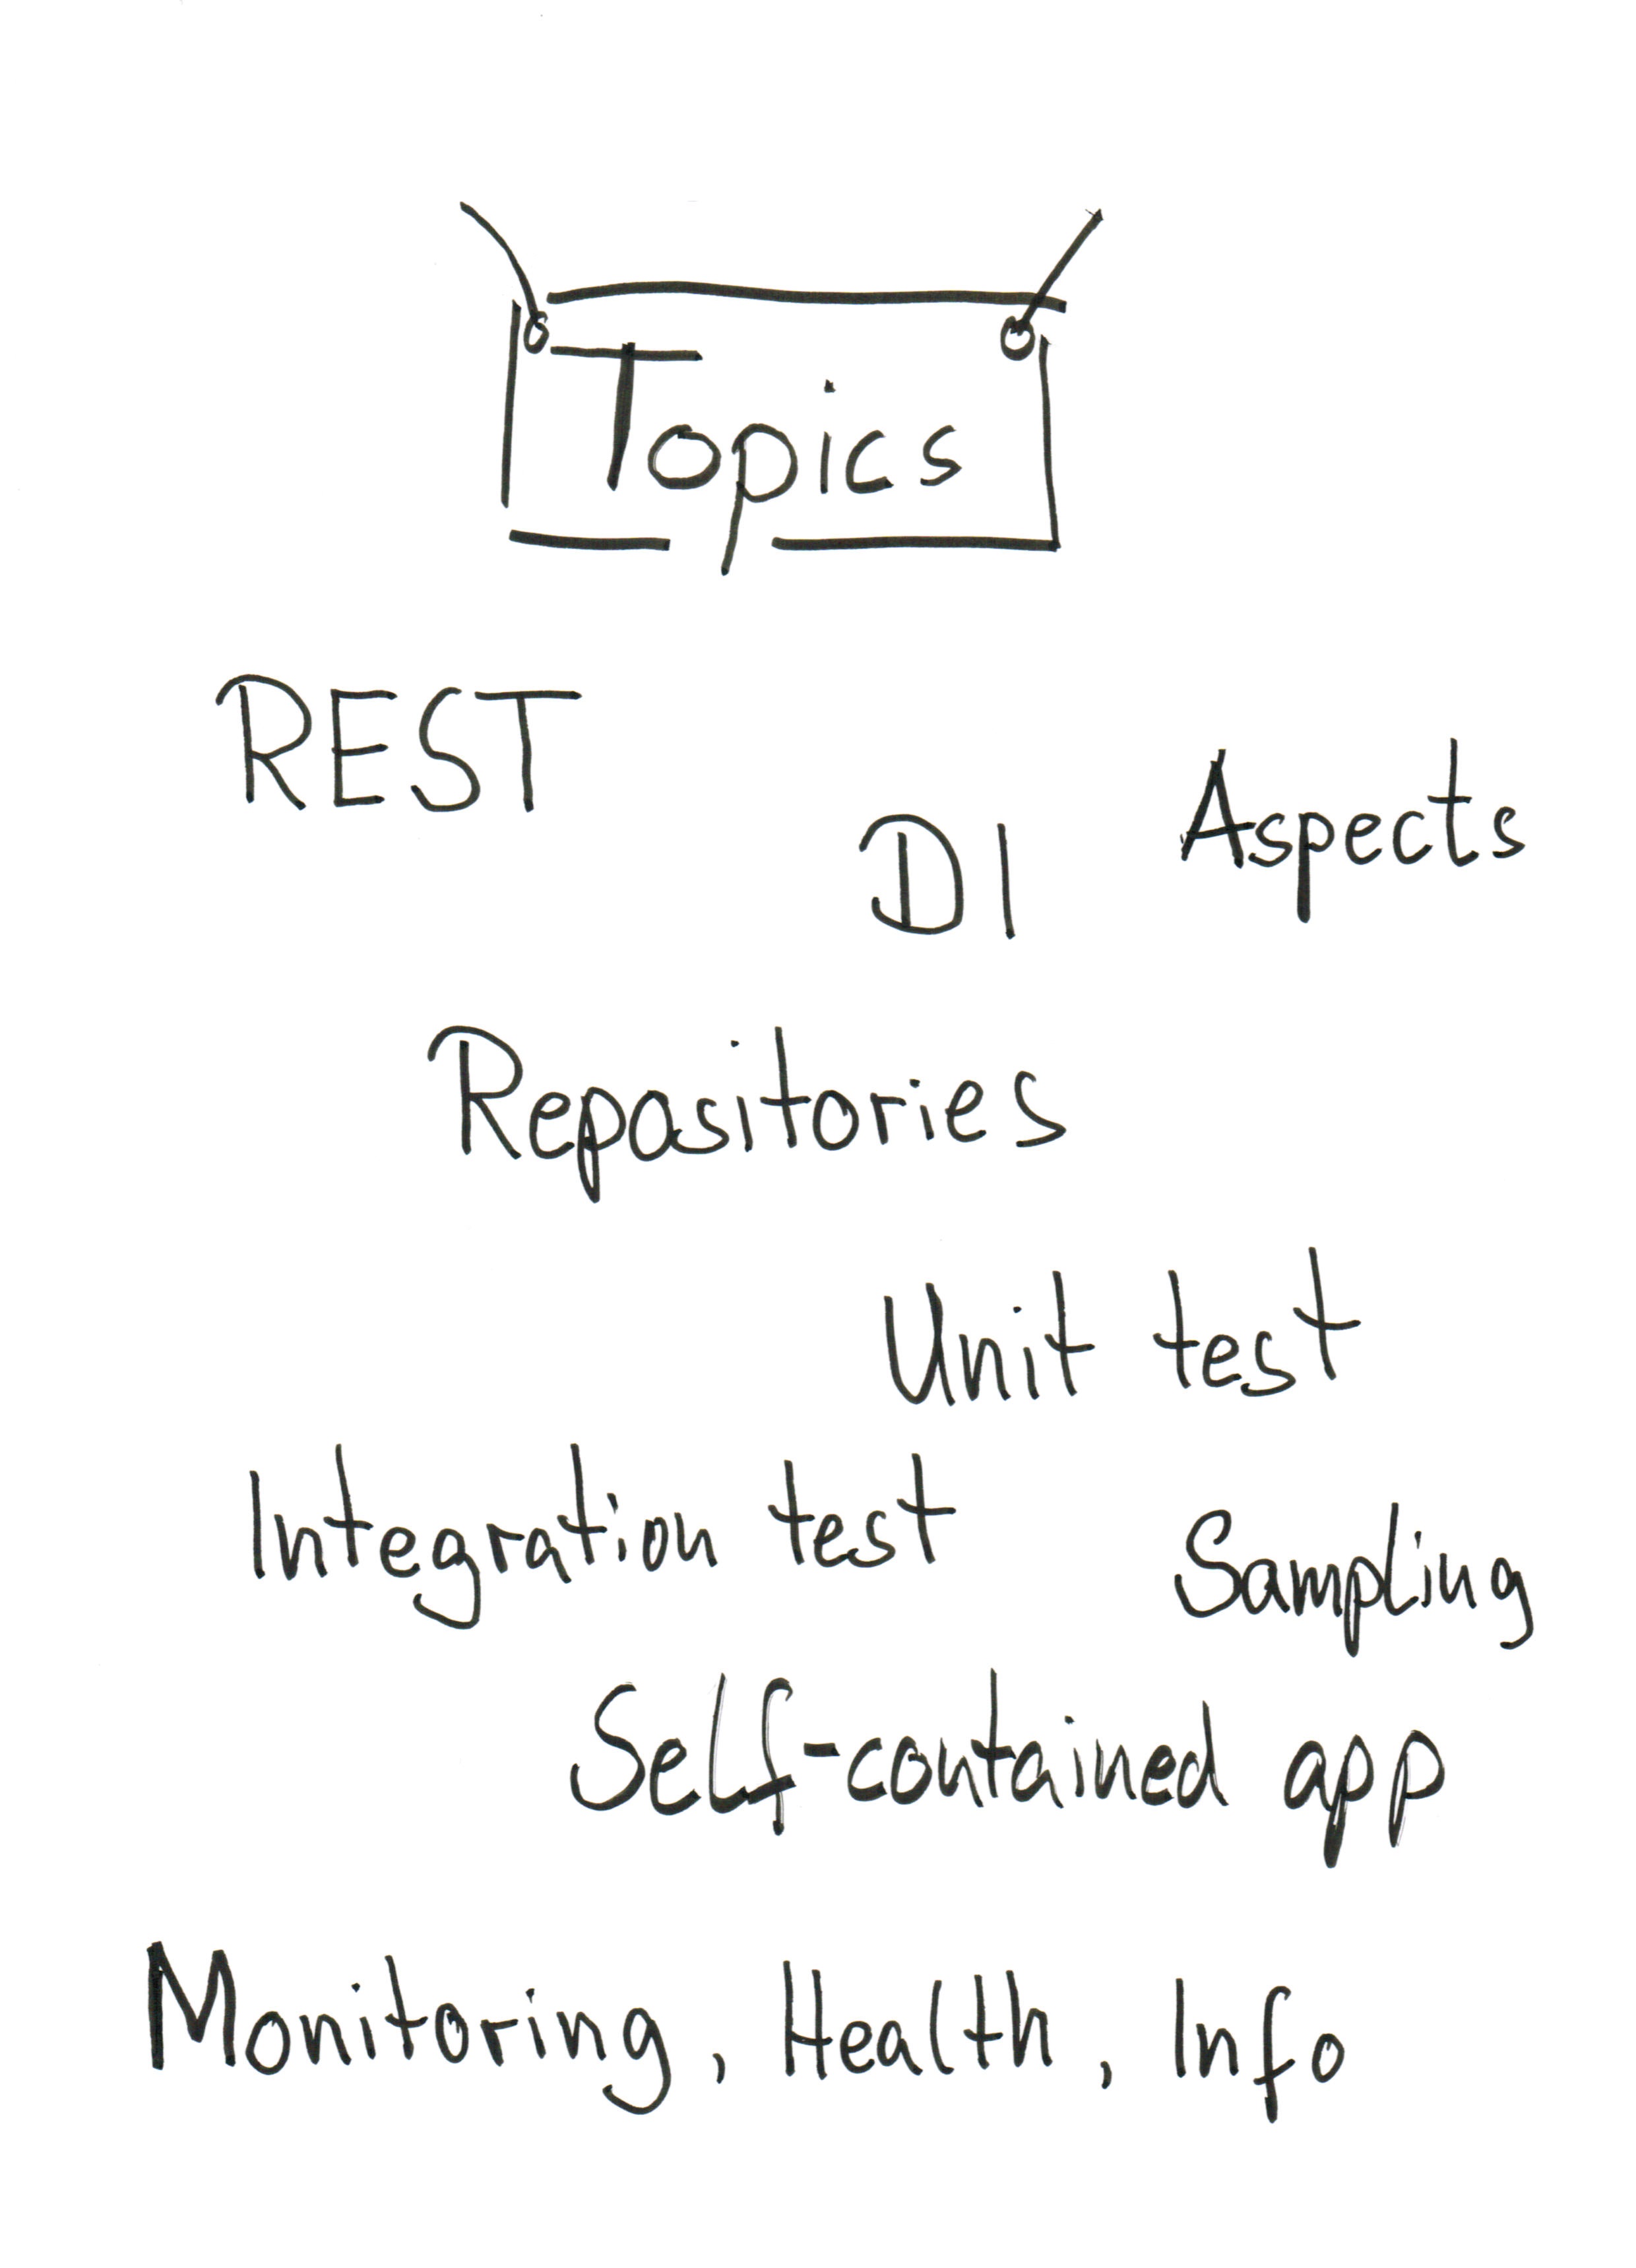 Topics
REST
DI
Aspects
Repositories
Unit test
Integration test
Sampling
Self-contained app
Monitoring, Health, Info